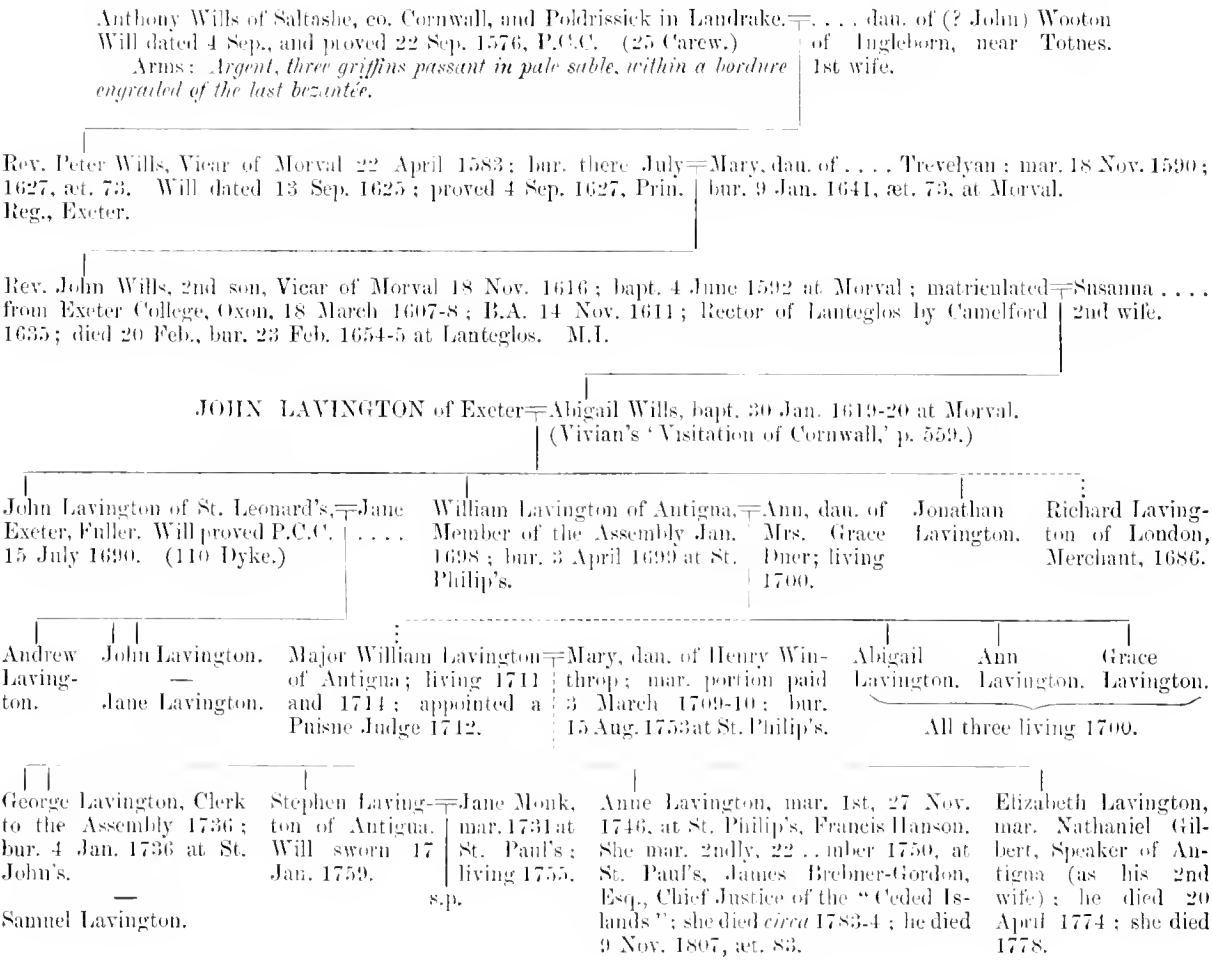 Anthony Wills of Saltashe, co. Cornwall, and Poldrissick in Landrake.
Will dated 4 Sep., and proved 22 Sep. 1576, P.C.C. (25 Carew.)
Arms: Argent, three griffins passant in pale sable, within a bordure
engrailed of the last bezantée.
. . . . dau. of (? John) Wooton
of Ingleborn, near Totnes.
1st wife.
Rev. Peter Wills, Vicar of Morval 22 April 1583; bur. there July
1627, æt. 73. Will dated 13 Sep. 1625; proved 4 Sep. 1627, Prin.
Reg., Exeter.
Mary, dau. of . . . . Trevelyan; mar. 18 Nov. 1590;
bur. 9 Jan. 1641, æt. 73, at Morval.
Rev. John Wills, 2nd son, Vicar of Morval 18 Nov. 1616; bapt. 4 June 1592 at Morval; matriculated
from Exeter College, Oxon, 18 March 1607-8; B.A. 14 Nov. 1611; Rector of Lanteglos by Camelford
1635; died 20 Feb., bur. 23 Feb. 1654-5 at Lanteglos. M.I.
Susanna . . . .
2nd wife.
JOHN LAVINGTON of Exeter
Abigail Wills, bapt. 30 Jan. 1619-20 at Morval.
(Vivian's 'Visitation of Cornwall,' p. 559.)
John Lavington of St. Leonard's,
Exeter, Fuller. Will proved P.C.C.
15 July 1690. (110 Dyke.)
Jane
. . . .
William Lavington of Antigua,
Member of the Assembly Jan.
1698; bur. 3 April 1699 at St.
Philip's.
Ann, dau. of
Mrs. Grace
Duer; living
1700.
Jonathan
Lavington.
Richard Laving-
ton of London,
Merchant, 1686.
Andrew
Laving-
ton.
John Lavington.
—
Jane Lavington.
Major William Lavington
of Antigua; living 1711
and 1714; appointed a
Puisne Judge 1742.
Mary, dau. of Henry Win-
throp; mar. portion paid
3 March 1709-10; bur.
15 Aug. 1753 at St. Philip's.
Abigail
Lavington.
Ann
Lavington.
Grace
Lavington.
All three living 1700.
George Lavington, Clerk
to the Assembly 1736;
bur. 4 Jan. 1736 at St.
John's.
—
Samuel Lavington.
Stephen Laving-
ton of Antigua.
Will sworn 17
Jan. 1759.
Jane Monk,
mar. 1731 at
St. Paul's;
living 1755.
s.p.
Anne Lavington, mar. 1st, 27 Nov.
1746, at St. Philip's, Francis Hanson.
She mar. 2ndly, 22 . . mber 1750, at
St. Paul's, James Brebner-Gordon,
Esq., Chief Justice of the "Ceded Is-
lands"; she died circa 1783-4; he died
9 Nov. 1807, æt. 83.
Elizabeth Lavington,
mar. Nathaniel Gil-
bert, Speaker of An-
tigua (as his 2nd
wife); he died 20
April 1774; she died
1778.